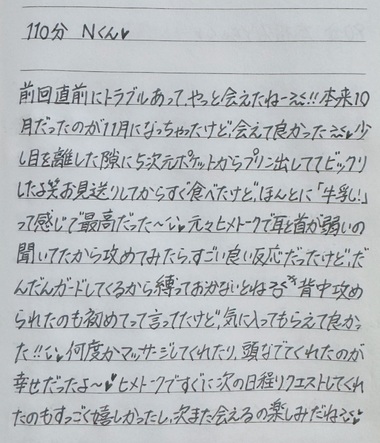 110分 Nくん♥
前回直前にトラブルあって、やっと会えたねー!!本来10
月だったのが11月になっちゃったけど、会えて良かった♥少
し目を離した隙に5次元ポケットからプリン出しててビックリ
したよ笑お見送りしてからすぐ食べたけど、ほんとに「牛乳!」
って感じで最高だった〜♥元々ヒメトークで耳と首が弱いの
聞いてたから攻めてみたら、すごい良い反応だったけど、だ
んだんガードしてくるから縛っておかないとね 背中攻め
られたのも初めてって言ってたけど、気に入ってもらえて良かっ
た!!♥何度かマッサージしてくれたり、頭なでてくれたのが
幸せだったよ〜♥ヒメトークですぐに次の日程リクエストしてくれ
たのもすっごく嬉しかったし、次また会えるの楽しみだね♥